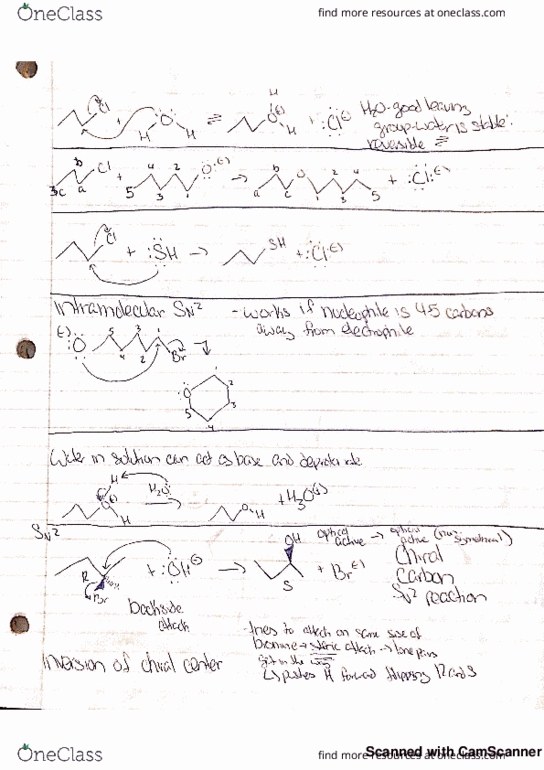 OneClass
find more resources at oneclass.com
H
Cl + O H H ⇌ O(+) H + :Cl(-) H2O-good leaving
group-water is stable
reversible ⇌
b Cl 4 2 O(-) b O 2 4 + :Cl:(-)
3c a + 5 3 1 → a c 1 3 5
Cl + :SH → SH + :Cl(-)
Intramolecular SN2 - works if nucleophile is 4-5 carbons
away from electrophile
(-) O 5 4 3 2 1 Br
O 1 2 3 4 5
Water in solution can act as base and deprotonate
H
O(+) H H2O → O H + H3O(+)
SN2
R Br + :OH(-) → OH S + Br(-)
optical active → optical active (no symmetrical)
Chiral
Carbon
SN2 reaction
backside
attack
- tries to attach on same side of
bromine → steric attach → lone pairs
get in the way
↳ pushes H forward flipping R and S
Inversion of chiral center
OneClass
find more resources at oneclass.com
Scanned with CamScanner